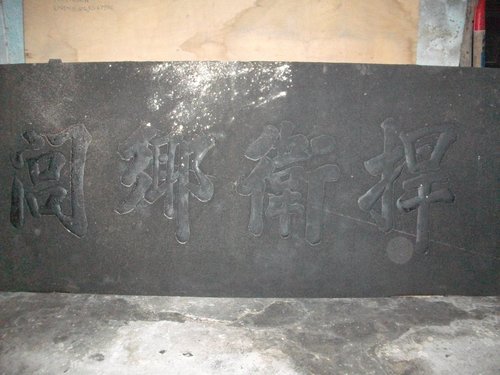 捍衛鄉閭